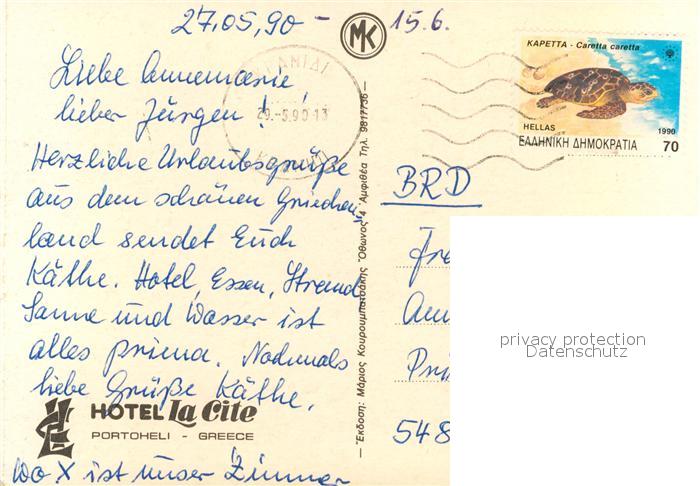 27.05.90 - 15.6.
MK
Liebe Annemarie,
lieber Jürgen!
Herzliche Urlaubsgrüße
aus dem schönen Griechen-
land sendet Euch
Käthe. Hotel, Essen, Strand
Sonne und Wasser ist
alles prima. Nochmals
liebe Grüße Käthe.
HOTEL La Cite
PORTOHELI - GREECE
Wo X ist unser Zimmer
29.-5.90 13
— Ἔκδοση: Μάριος Κουρουμπατράκης Ὄθωνος 4 Ἀμφιθέα Τηλ. 9817736 —
ΚΑΡΕΤΤΑ - Caretta caretta
HELLAS
1990
ΕΛΛΗΝΙΚΗ ΔΗΜΟΚΡΑΤΙΑ
70
BRD
548
privacy protection
Datenschutz